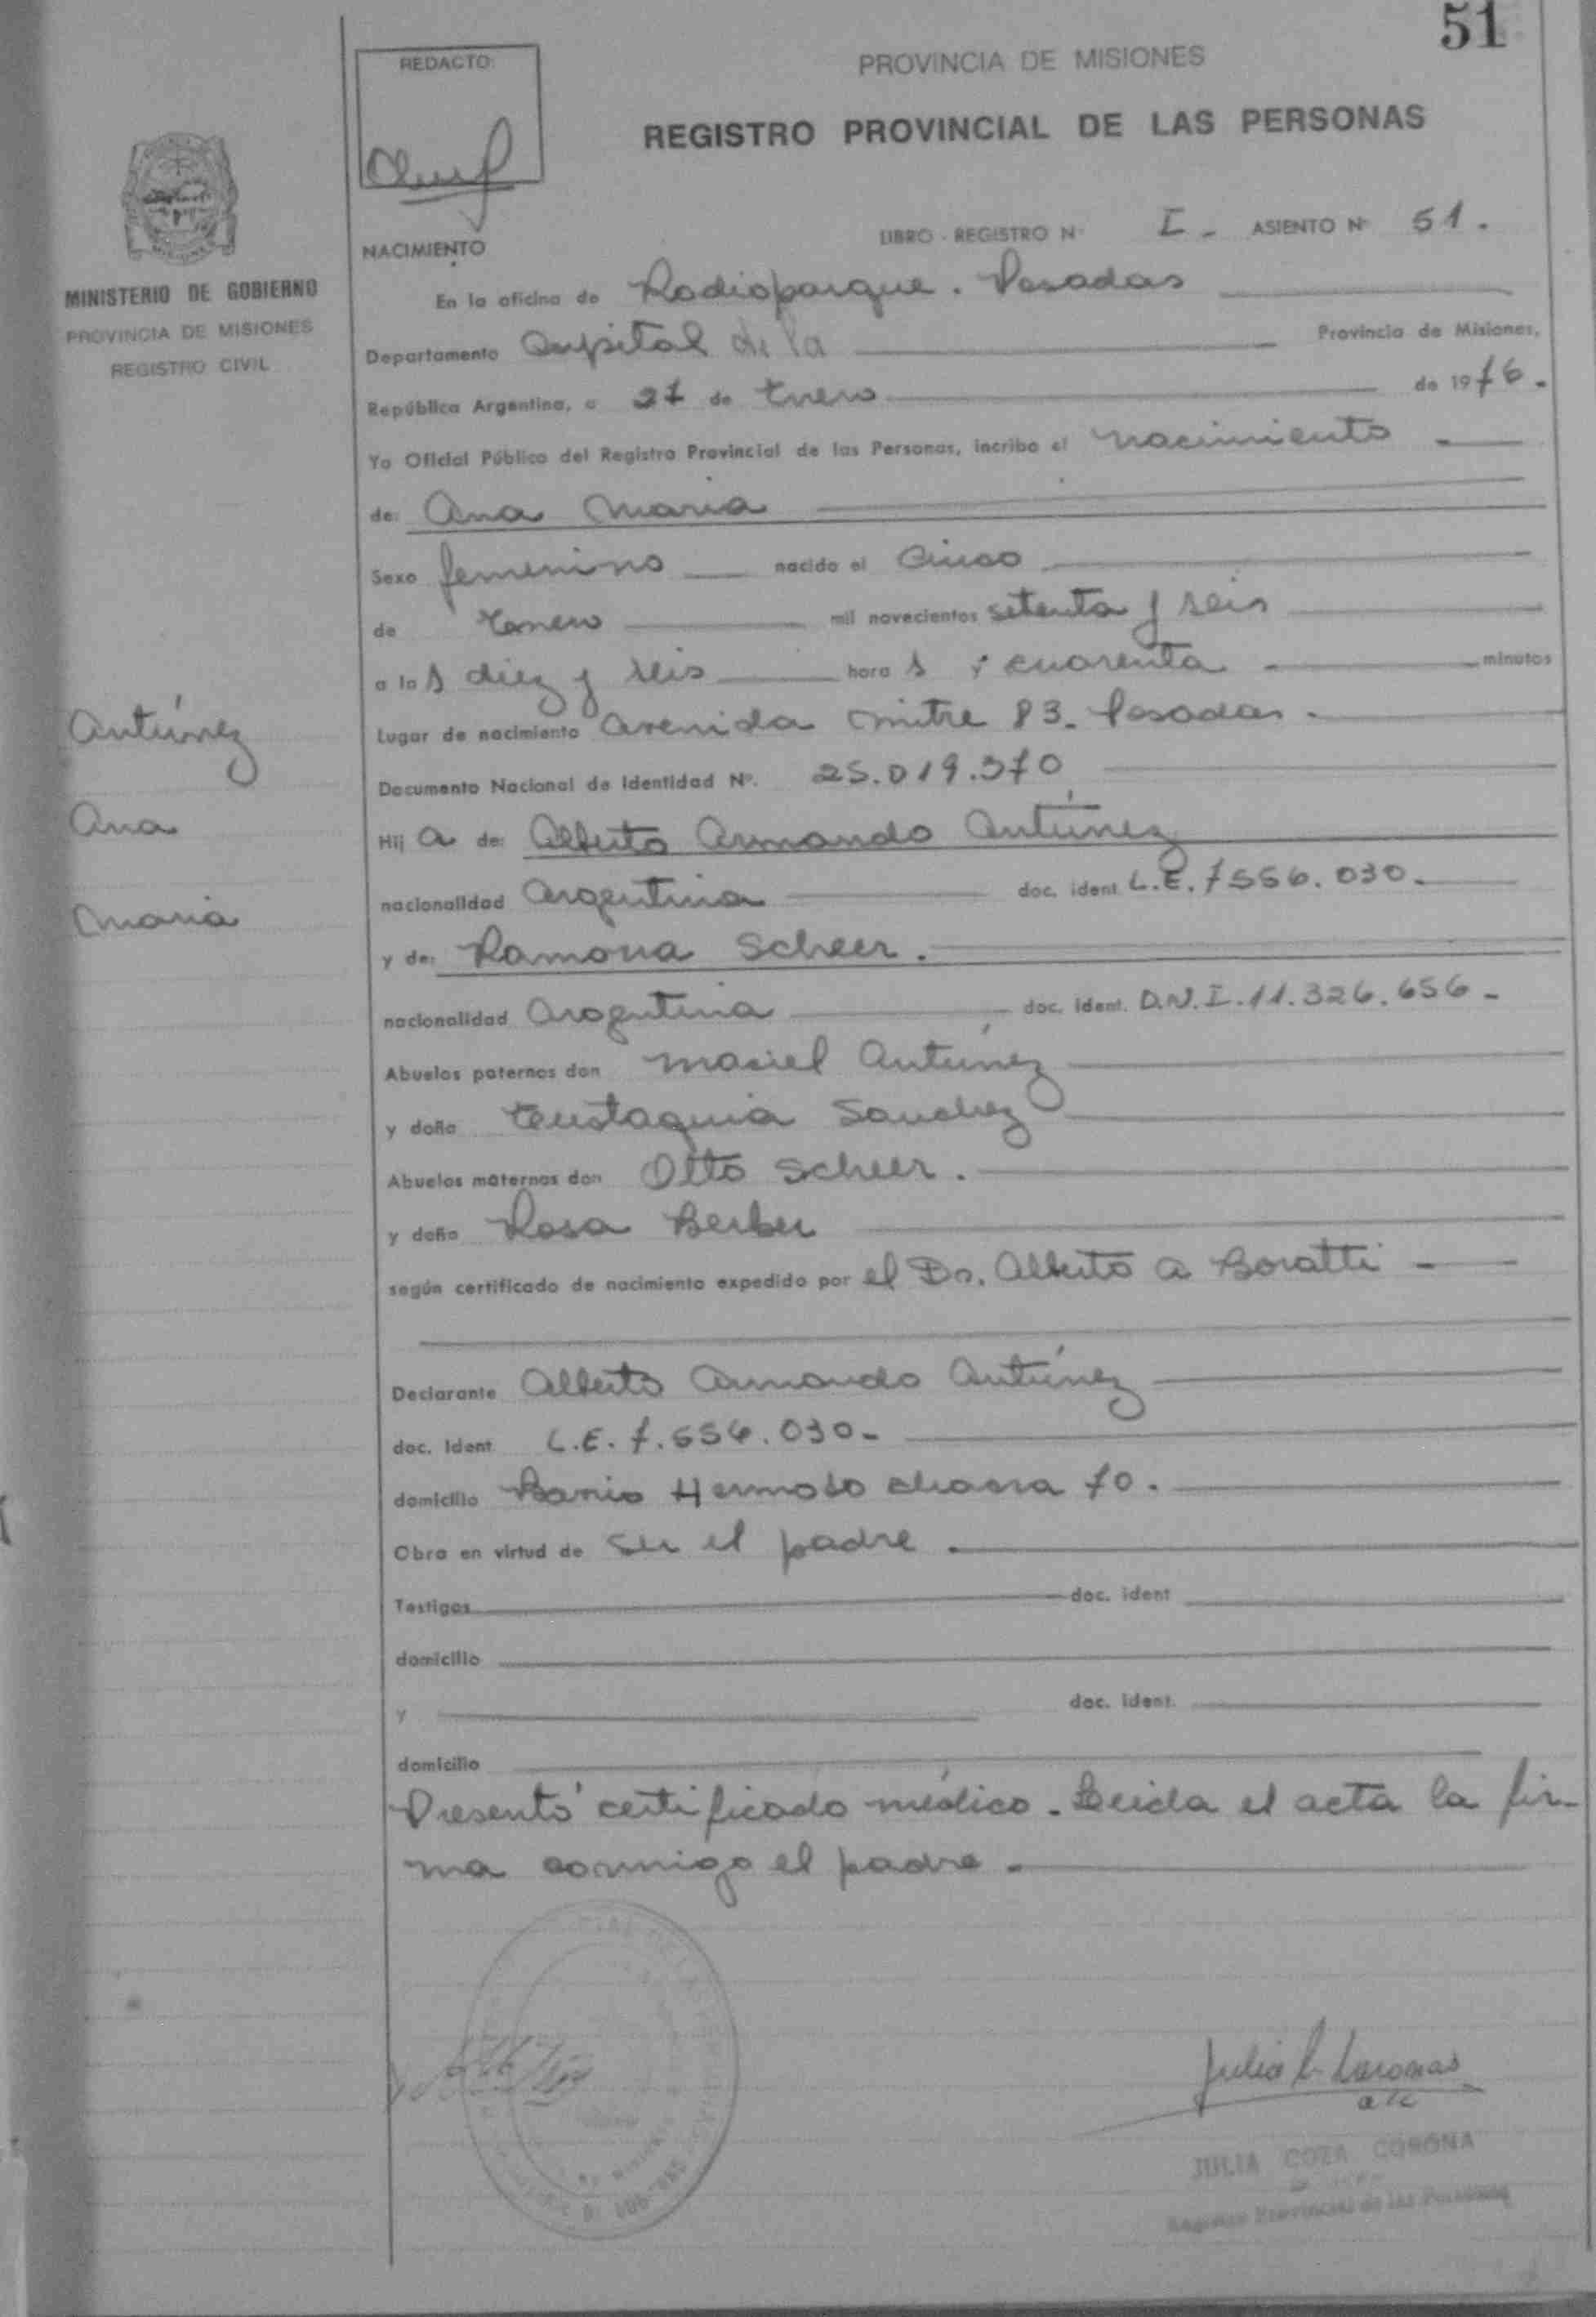 51
REDACTO
PROVINCIA DE MISIONES
REGISTRO PROVINCIAL DE LAS PERSONAS
LIBRO - REGISTRO Nº I - ASIENTO Nº 51.
NACIMIENTO
MINISTERIO DE GOBIERNO
PROVINCIA DE MISIONES
REGISTRO CIVIL
En la oficina de Radioparque. Posadas
Departamento Capital de la Provincia de Misiones,
República Argentina, a 27 de Enero de 1976.
Yo Oficial Público del Registro Provincial de las Personas, incribo el nacimiento
de: Ana Maria
Sexo femenino nacido el Cinco
de Enero mil novecientos setenta y seis
a las diez y seis horas y cuarenta minutos
Lugar de nacimiento Avenida Mitre 83. Posadas.
Documento Nacional de Identidad Nº. 25.019.370
Antúnez
Ana
Maria
Hija de: Alberto Armando Antúnez
nacionalidad Argentina doc. ident. L.E. 7556.030.
y de: Ramona Scheer.
nacionalidad Argentina doc. ident. D.N.I. 11.326.656 -
Abuelos paternos don Maciel Antúnez
y doña Eustaquia Sanchez
Abuelos maternos don Otto Scheer.
y doña Rosa Berber
según certificado de nacimiento expedido por el Dr. Alberto A Boratti
Declarante Alberto Armando Antúnez
doc. Ident. L.E. 7.556.030 -
domicilio Barrio Hermoso chacra 70.
Obra en virtud de ser el padre.
Testigos doc. ident
domicilio
y doc. Ident.
domicilio
Presentó certificado médico. Leida el acta la fir-
ma conmigo el padre.
Julia
a/c
JULIA COZA CORONA
Registro Provincial de las Personas